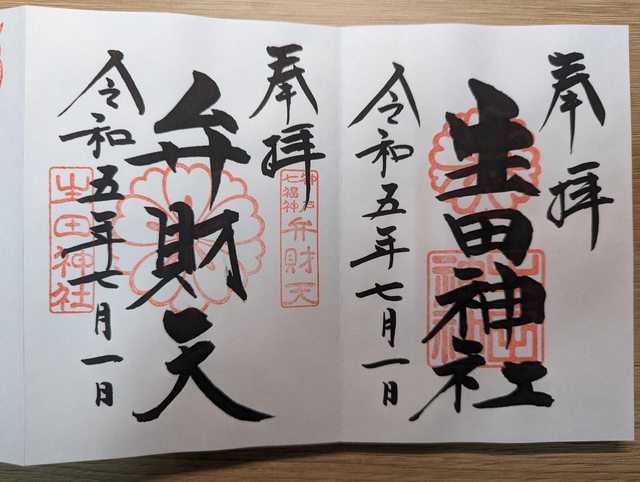 奉拝
生田神社
令和五年七月一日
奉拝
神戸七福神
弁財天
弁財天
令和五年七月一日
生田神社